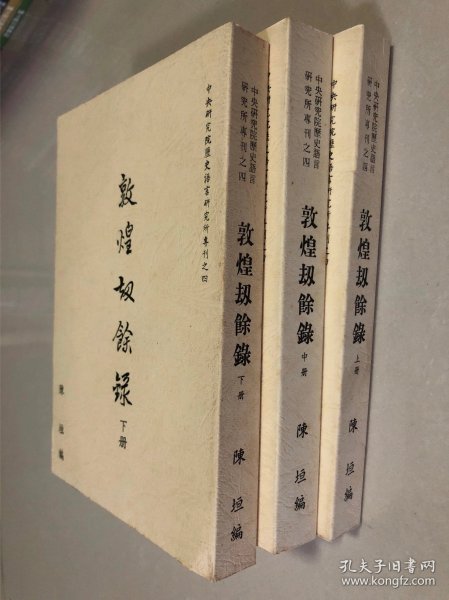 中央研究院歷史語言研究所專刊之四
敦煌劫餘錄
下册
陳垣編
中央研究院歷史語言
研究所專刊之四
敦煌劫餘錄
下册
陳垣編
中央研究院歷史語言
研究所專刊之四
敦煌劫餘錄
中册
陳垣編
中央研究院歷史語言
研究所專刊之四
敦煌劫餘錄
上册
陳垣編
孔夫子旧书网
www.kongfz.com